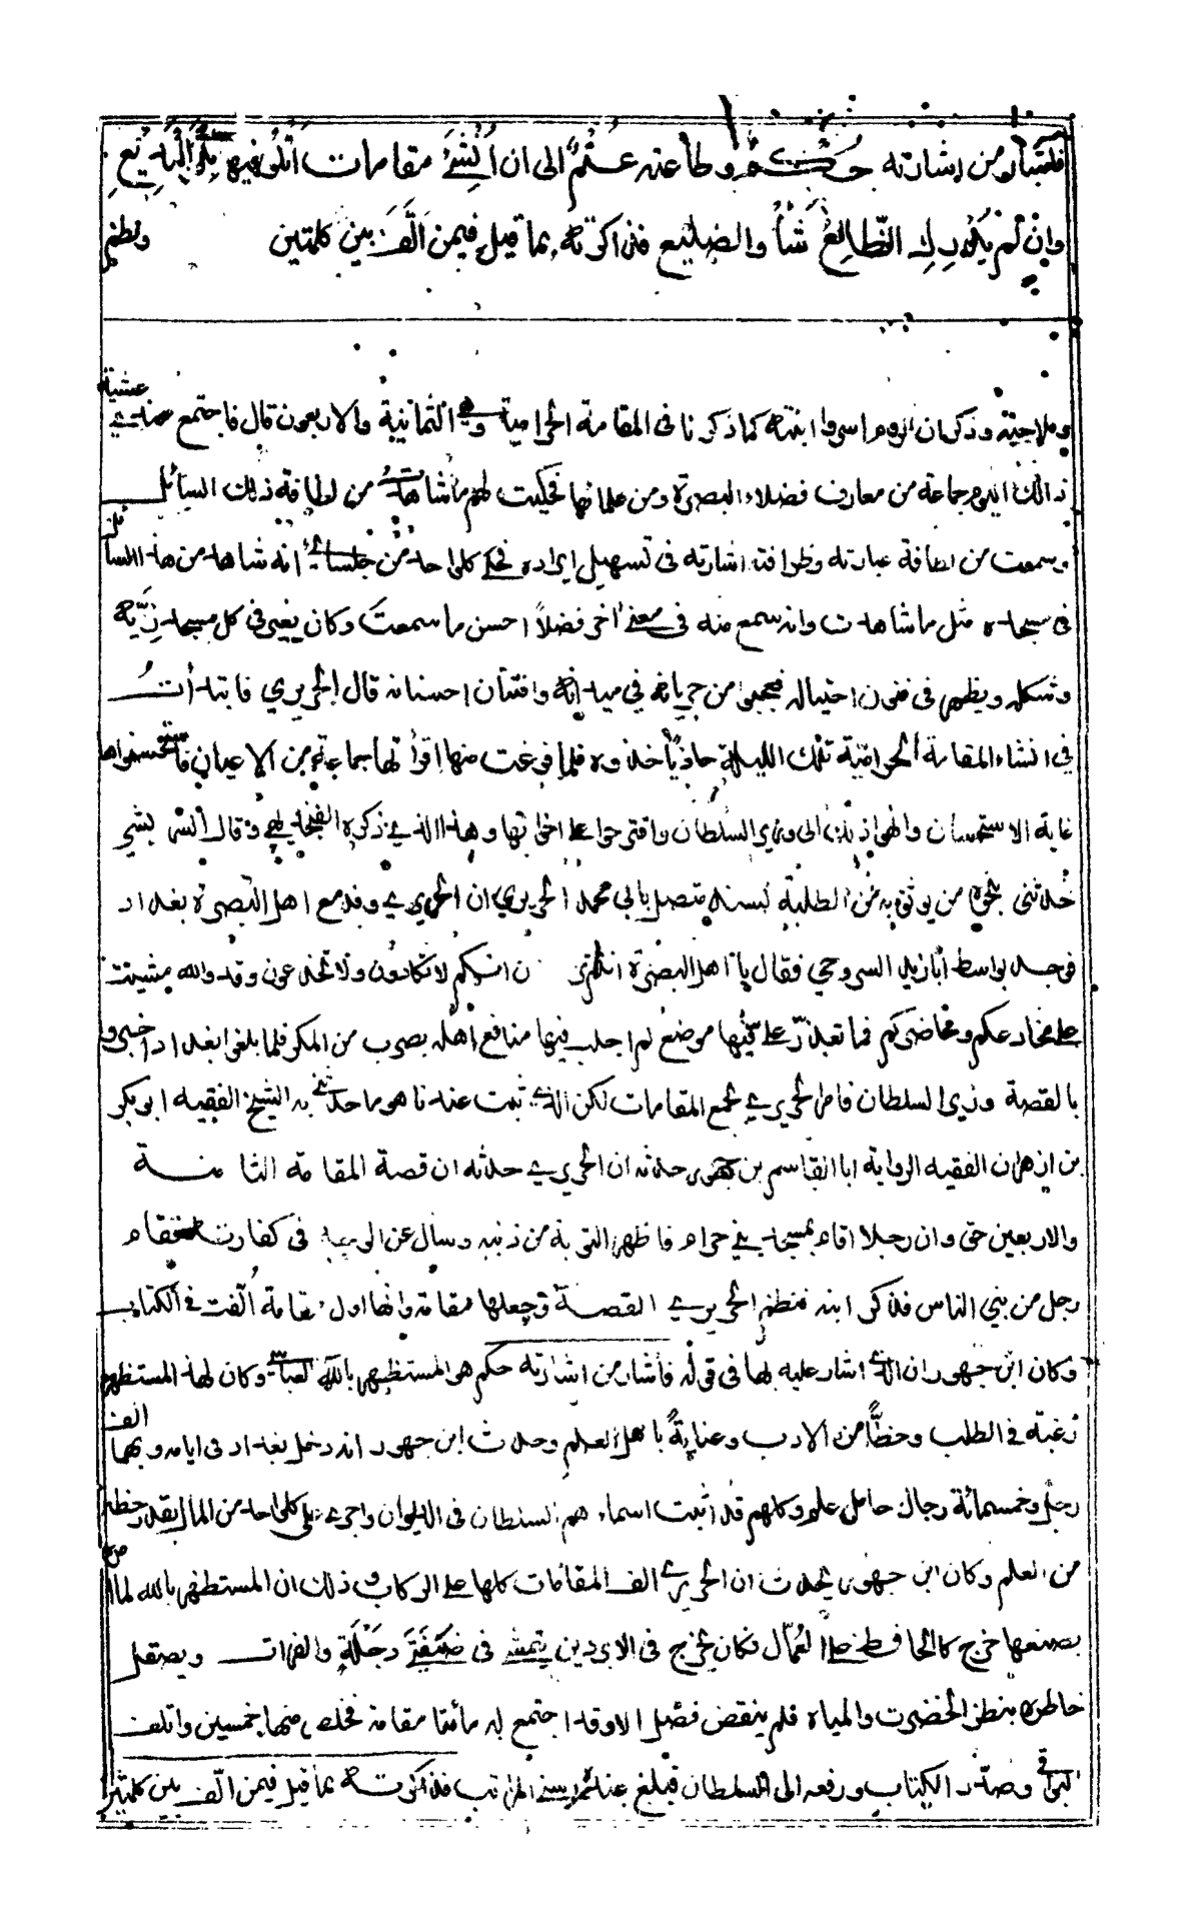 فأشار من إشارته حُكمٌ وطاعته غُنْمٌ الى ان اُنْشِئَ مقامات اَتْلُو فيها تِلْوَ الْبَدِيعِ
وإن لم يُدْرِكِ الظّالِعُ شَأْوَ الضليع فذاكرته بما قيل فيمن اَلَّفَ بين كلمتين ونظم
وملاحته وذكر ان الروم اسروا ابنته كما ذكرنا فى المقامة الحرامية وهي الثمانية والاربعون قال فاجتمع عندي عشية
ذالك اليوم جماعة من معارف فضلاء البصرة ومن علمائها فحكيت لهم ما شاهدتُ من لطافة ذلك السائل
وسمعت من لطافة عبارته وظرافة اشارته فى تسهيل ايراده فحكى كل واحد من جلسائى انه شاهد من هذا السائل
فى مسجده مثل ما شاهدت وانه سمع منه فى معنى اخر فضلاً احسن ما سمعتَ وكان يغير فى كل مسجد زيّه
وشكله ويظهر فى فنون احتياله فعجبوا من جريانه في ميدانه وافتنان احسانه قال الحريري فابتدأتُ
في انشاء المقامة الحرامّية تلك الليلة حاذياً حذوه فلما فرغت منها اقرأتها جماعة من الاعيان فاستحسنوها
غاية الاستحسان وانهوا ذلك الى وزير السلطان واقترحوا على اخواتها وهذا الذى ذكره الفنجديهي وقال الشريشي
حدثنى بنحوه من يوثق به من الطلبة بسند متصل بابي محمد الحريري ان الحريري وفد مع اهل البصرة بغداد
فوجد بواسط أبازيد السروجي فقال يا اهل البصرة انكم ن انكم لا تكادون ولا تخدعون وقد والله مشيت
على مخادعكم ومخاضركم فما تعذر علي فيها موضع لم اجلب فيها منافع اهله بضرب من المكر فلما بلغوا بغداد اخبروا
بالقصة وزير السلطان فامر الحريري بجمع المقامات لكن الذى ثبت عندنا هو ما حدثني به الشيخ الفقيه ابو بكر
بن ازهران الفقيه الرواية ابا القاسم بن جهور حدثه ان الحريري حدثه ان قصة المقامة الثامنة
والاربعين حق وان رجلا اقام بمسجد بني حرام فاظهر التوبة من ذنبه وسأل عن الوجه فى كفارته فقام
رجل من بني الناس فذكر ابنه فنظم الحريري القصة وجعلها مقامة وانها اول مقامة اُلّفت في الكتاب
وكان ابن جهور ان الذى اشار عليه بها فى قوله فأشار من اشارته حكم هو المستظهر بالله العباسى وكان لهذا المستظهر
رغبة في الطلب وحظًّا من الادب وعنايةً باهل العلم وحدث ابن جهور انه دخل بغداد فى ايامه وبها الف
رجل وخمسمائة رجال حامل علم وكلهم قد اثبت اسماءهم السلطان فى الديوان واجرى على كل واحد من المال بقدر حظه
من العلم وكان ابن جهور يحدث ان الحريري الف المقامات كلها على الركاب وذلك ان المستظهر بالله لما امره
بصنعها خرج كالحافظ على العُمّال فكان يخرج فى الابردين يتمشى فى ضَفَّتَيْ دجْلَةَ والفرات ويصقل
خاطره بنظر الخضرة والمياه فلم ينقض فصل الاوقد اجتمع له مائتا مقامة فخلص منها خمسين واتلف
البواقي وصدر الكتاب ورفعه الى السلطان فبلغ عنده اسنى المراتب فذاكرته بما قيل فيمن الّف بين كلمتين